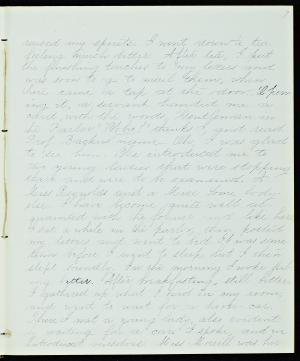 raised my spirits. I went down to tea
feeling much better. After tea, I put
the finishing touches to my letters and
was soon to go to mail them, when
there came a tap at the door. Open
ing it, a servant handed me a
card, with the words, "Gentleman in
the Parlor." "Who?" thinks I, and read
Prof. name. Oh, I was glad
to see him. He introduced me to
two young ladies that were stopping
there and were to be
Miss Reynolds and a Miss body
else. I have become quite well ac
quainted with the former and like her.
I sat a while in the parlor, then posted
my letters and went to bed. It was some
time before I urged to sleep but I then
slept soundly. In the morning I woke feel
ing better. After breakfasting, still better.
I gathered up what I had in my room,
and went to wait for a horse car.
There I met a young lady, also evident
ly waiting for a "car." I spoke, and in
troduced myself. Miss Merrill was her